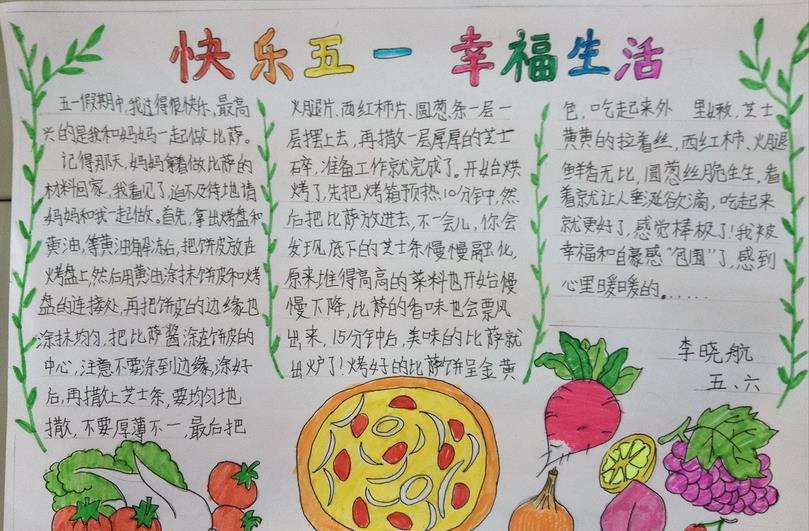 快乐五一 幸福生活
五一假期中,我过得很快乐,最高
兴的是我和妈妈一起做比萨。
记得那天,妈妈拿着做比萨的
材料回家,我看见了,迫不及待地请
妈妈和我一起做。首先,拿出烤盘和
黄油,等黄油解冻后,把饼皮放在
烤盘上,然后用黄油涂抹饼皮和烤
盘的连接处,再把饼皮的边缘也
涂抹均匀,把比萨酱涂在饼皮的
中心,注意不要涂到边缘,涂好
后,再撒上芝士条,要均匀地
撒,不要厚薄不一,最后把
火腿片、西红柿片、圆葱条一层一
层摆上去,再撒一层厚厚的芝士
碎,准备工作就完成了。开始烘
烤了,先把烤箱预热10分钟,然
后把比萨放进去,不一会儿,你会
发现底下的芝士条慢慢融化,
原来堆得高高的菜料也开始慢
慢下降,比萨的香味也会飘
出来,15分钟后,美味的比萨就
出炉了!烤好的比萨饼呈金黄
色,吃起来外 里嫩,芝士
黄黄的拉着丝,西红柿、火腿
鲜香无比,圆葱丝脆生生,看
着就让人垂涎欲滴,吃起来
就更好了,感觉棒极了!我被
幸福和自豪感“包围”了,感到
心里暖暖的……
李晓航
五、六